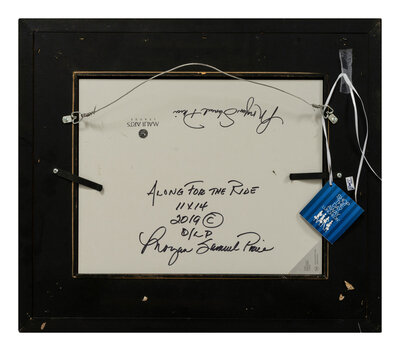 Morgan Samuel Price
ALONG FOR THE RIDE
11X14
2019 ©
O/LP
Morgan Samuel Price